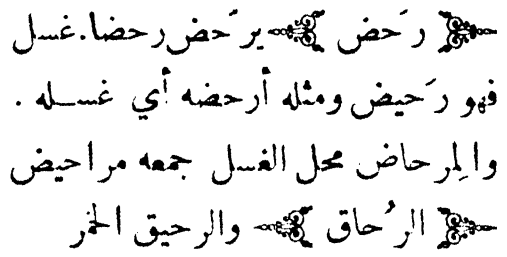 ﴿ رَحض ﴾ يرَحض رحضا. غسل
فهو رَحيض ومثله أرحضه أي غسله .
والمِرحاض محل الغسل جمعه مراحيض
﴿ الرُحاق ﴾ والرحيق الخمر